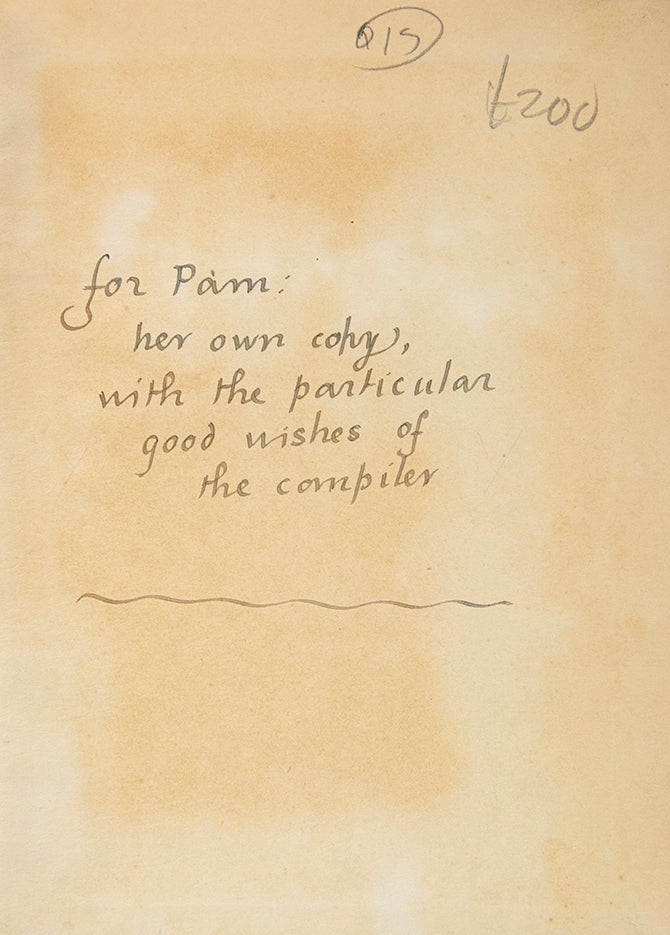 Q15
£200
for Pam:
her own copy,
with the particular
good wishes of
the compiler